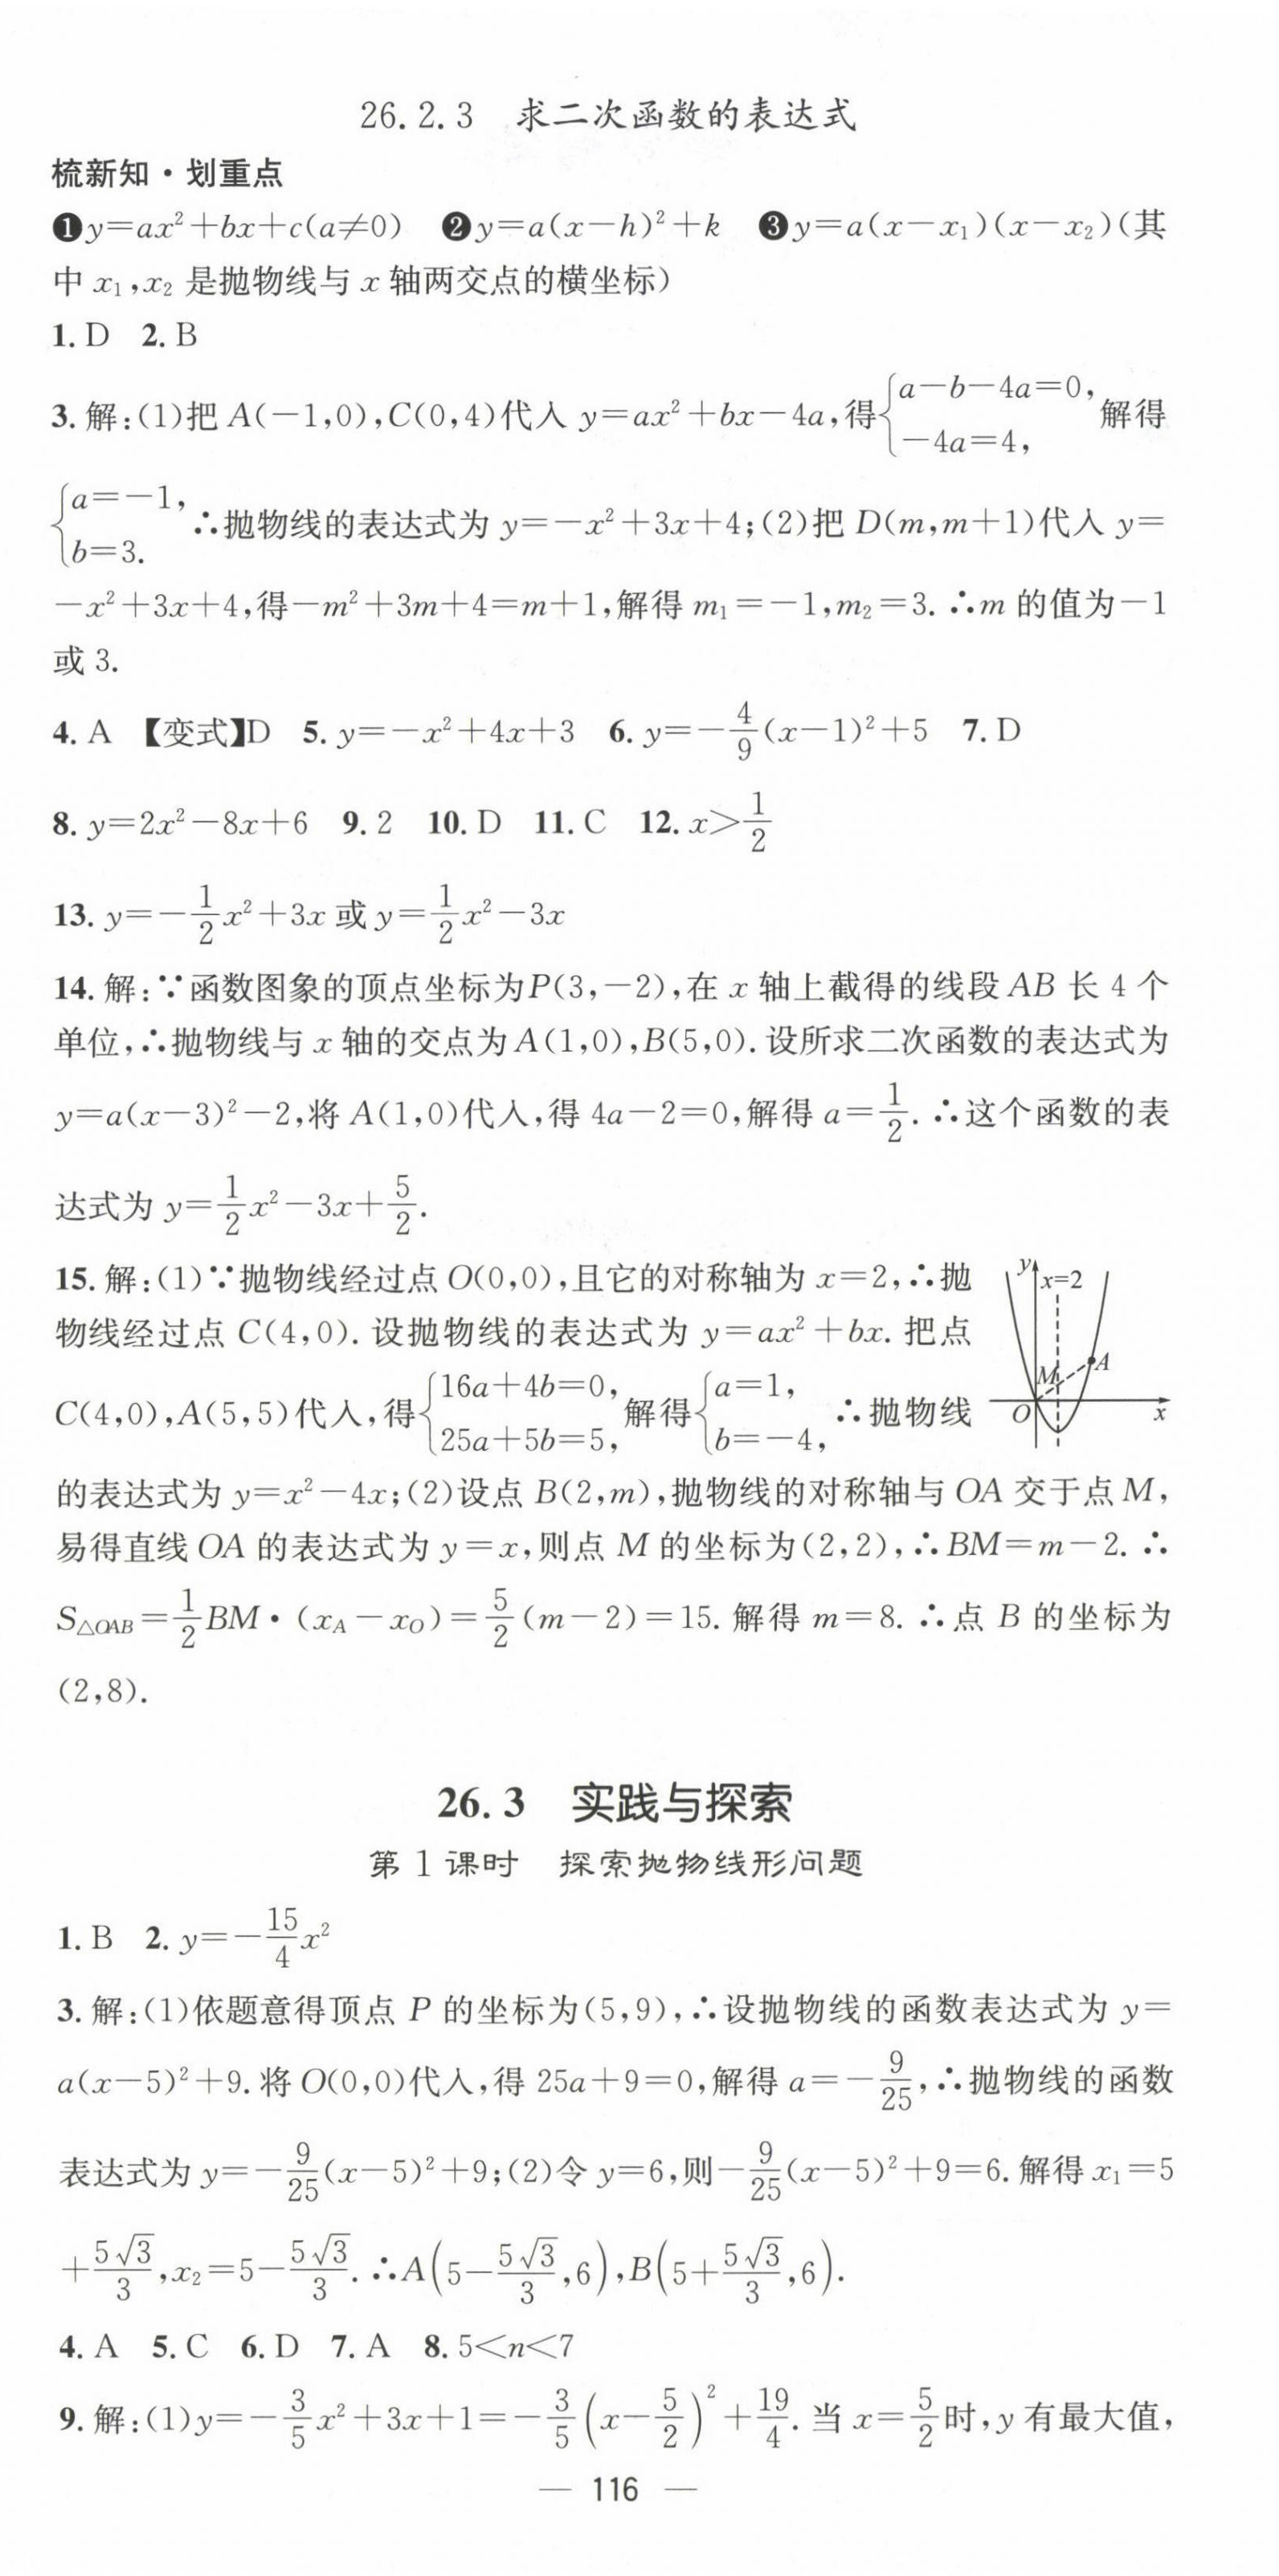 26.2.3 求二次函数的表达式
梳新知·划重点
❶y=ax²+bx+c(a≠0) ❷y=a(x−h)²+k ❸y=a(x−x₁)(x−x₂)(其
中 x₁,x₂ 是抛物线与 x 轴两交点的横坐标)
1. D 2. B
3. 解:(1)把 A(−1,0),C(0,4)代入 y=ax²+bx−4a,得{a−b−4a=0, −4a=4, 解得
{a=−1, b=3. ∴抛物线的表达式为 y=−x²+3x+4;(2)把 D(m,m+1)代入 y=
−x²+3x+4,得−m²+3m+4=m+1,解得 m₁=−1,m₂=3. ∴m 的值为−1
或 3.
4. A 【变式】D 5. y=−x²+4x+3 6. y=−4/9(x−1)²+5 7. D
8. y=2x²−8x+6 9. 2 10. D 11. C 12. x>1/2
13. y=−1/2x²+3x 或 y=1/2x²−3x
14. 解:∵函数图象的顶点坐标为P(3,−2),在 x 轴上截得的线段 AB 长 4 个
单位,∴抛物线与 x 轴的交点为 A(1,0),B(5,0). 设所求二次函数的表达式为
y=a(x−3)²−2,将 A(1,0)代入,得 4a−2=0,解得 a=1/2. ∴这个函数的表
达式为 y=1/2x²−3x+5/2.
15. 解:(1)∵抛物线经过点 O(0,0),且它的对称轴为 x=2,∴抛
物线经过点 C(4,0). 设抛物线的表达式为 y=ax²+bx. 把点
C(4,0),A(5,5)代入,得{16a+4b=0, 25a+5b=5, 解得{a=1, b=−4, ∴抛物线
y
x=2
A
M
O
x
的表达式为 y=x²−4x;(2)设点 B(2,m),抛物线的对称轴与 OA 交于点 M,
易得直线 OA 的表达式为 y=x,则点 M 的坐标为(2,2),∴BM=m−2. ∴
S△OAB=1/2BM·(xA−xO)=5/2(m−2)=15. 解得 m=8. ∴点 B 的坐标为
(2,8).
26.3 实践与探索
第 1 课时 探索抛物线形问题
1. B 2. y=−15/4x²
3. 解:(1)依题意得顶点 P 的坐标为(5,9),∴设抛物线的函数表达式为 y=
a(x−5)²+9. 将 O(0,0)代入,得 25a+9=0,解得 a=−9/25,∴抛物线的函数
表达式为 y=−9/25(x−5)²+9;(2)令 y=6,则−9/25(x−5)²+9=6. 解得 x₁=5
+5√3/3,x₂=5−5√3/3. ∴A(5−5√3/3,6),B(5+5√3/3,6).
4. A 5. C 6. D 7. A 8. 5<n<7
9. 解:(1)y=−3/5x²+3x+1=−3/5(x−5/2)²+19/4. 当 x=5/2时,y 有最大值,
— 116 —